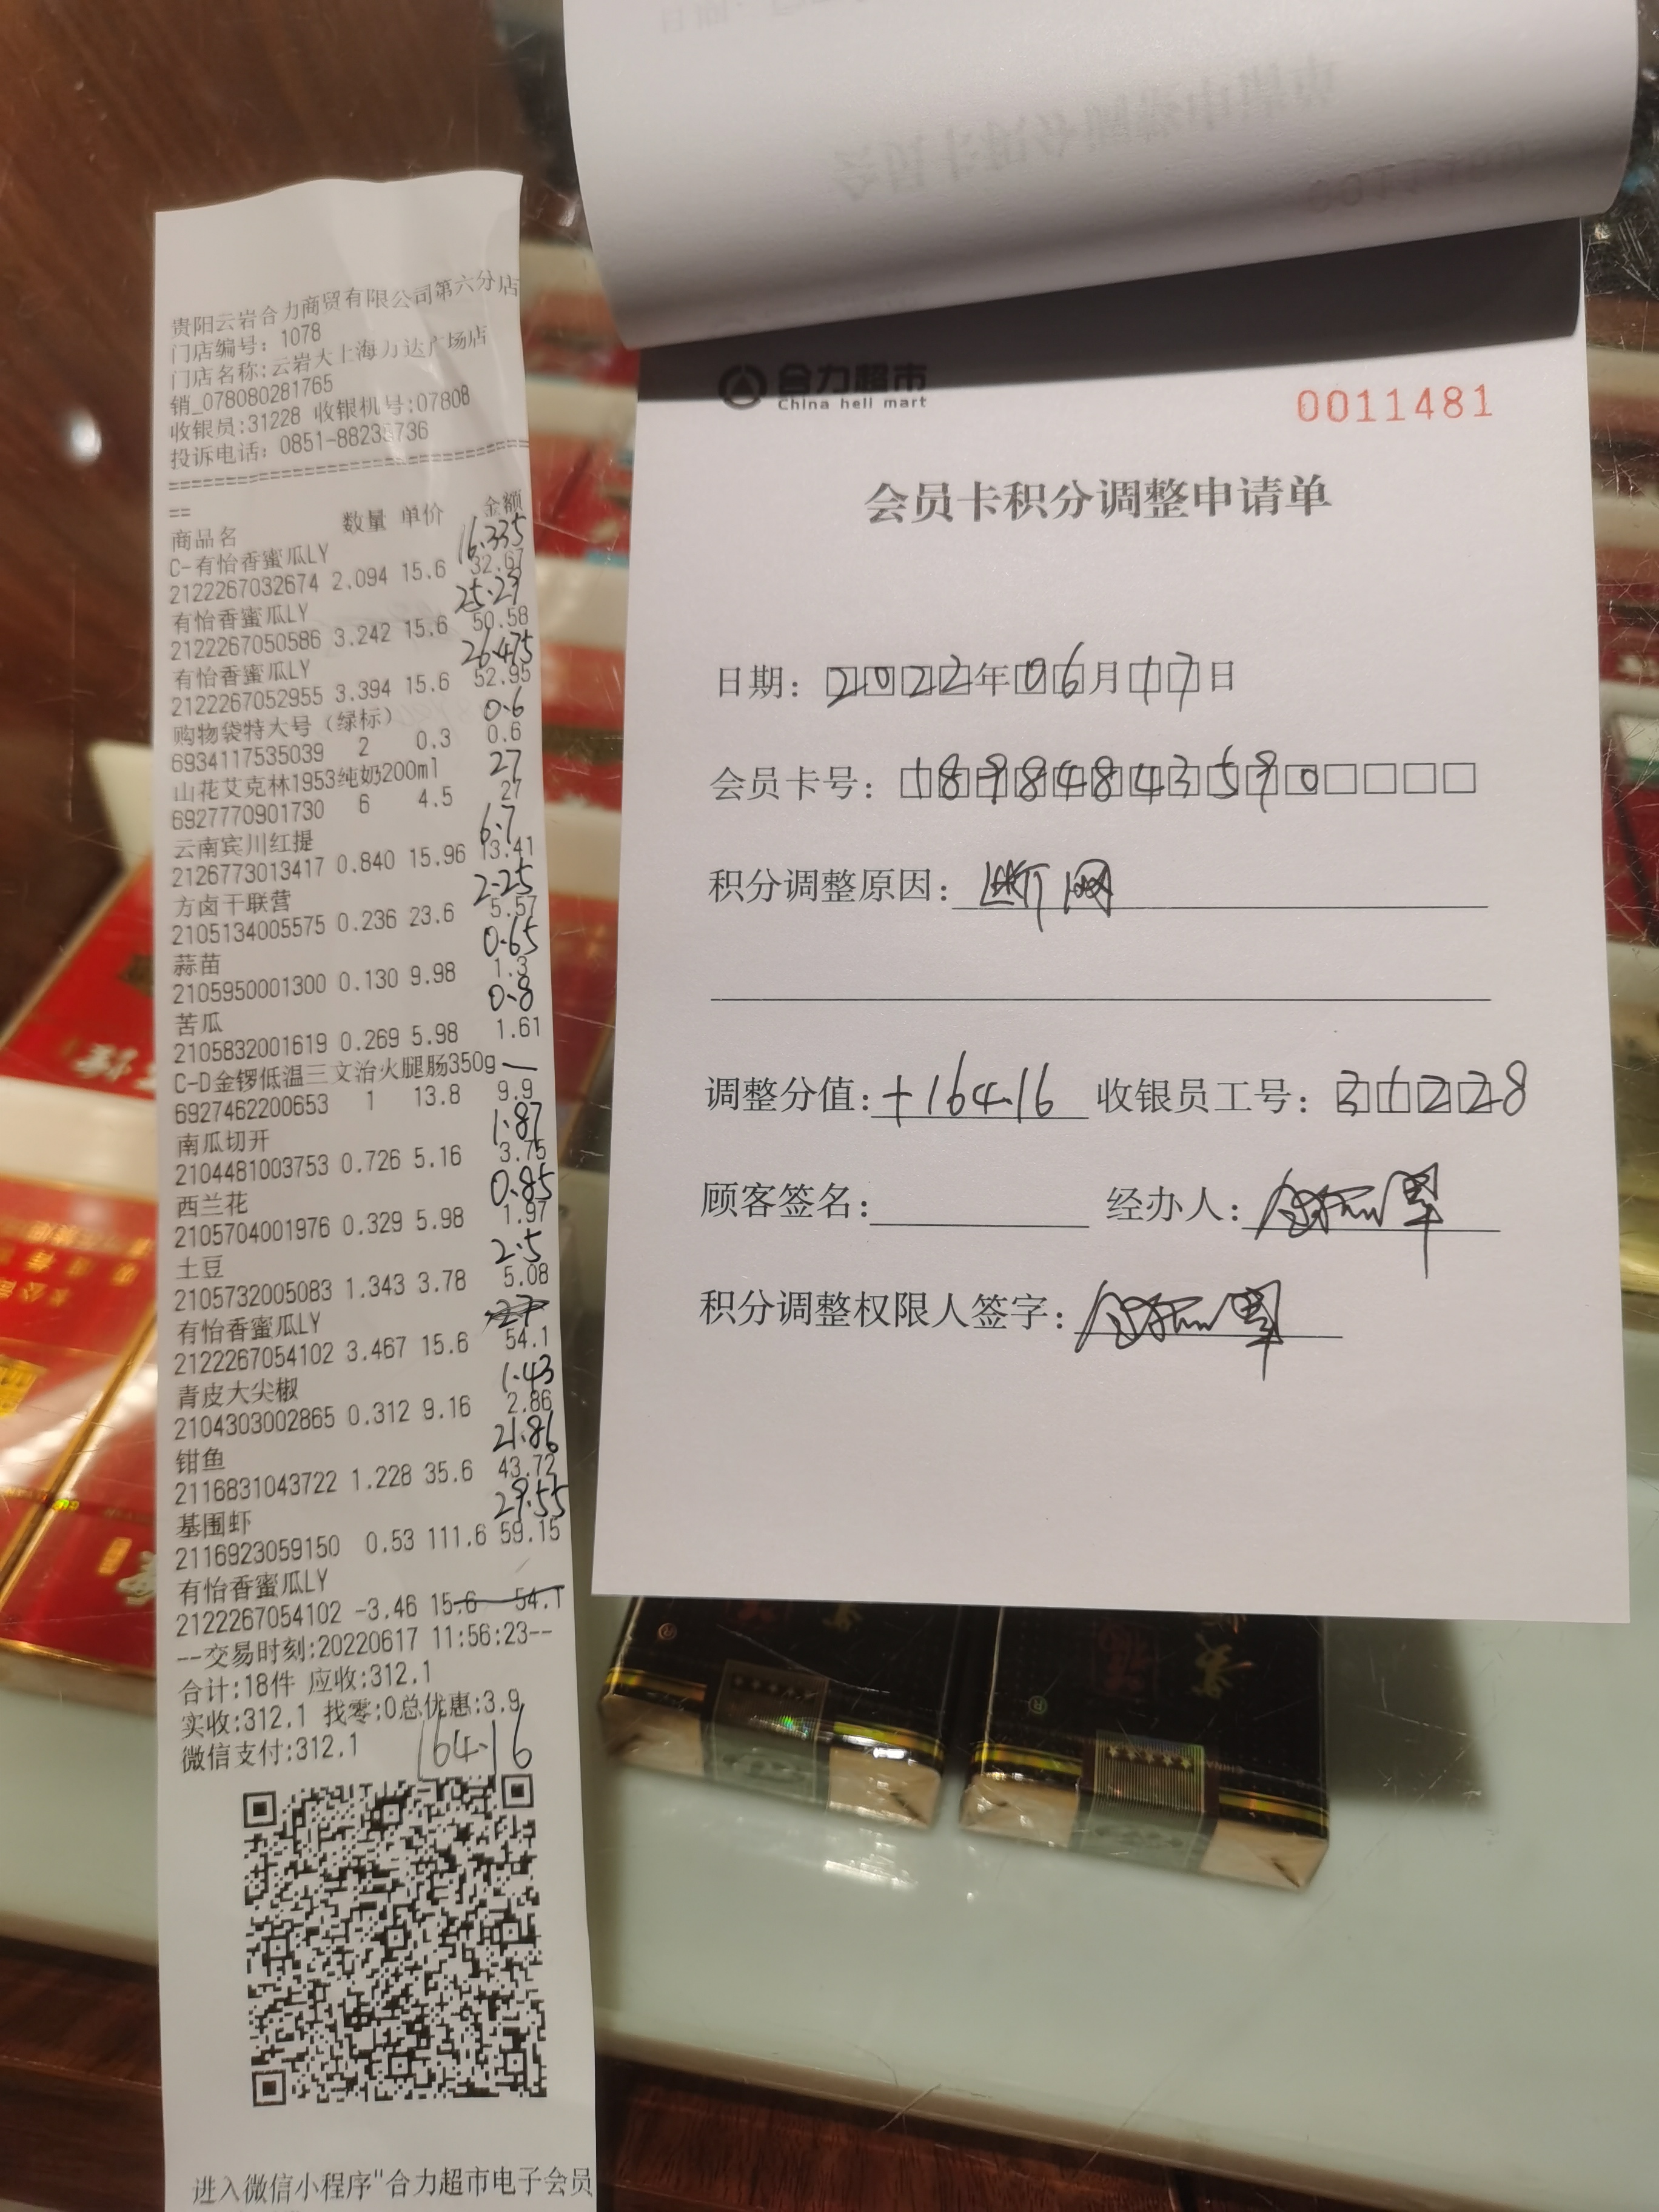 贵阳云岩合力商贸有限公司第六分店
门店编号：1078
门店名称:云岩大上海力达广场店
销_078080281765
收银员:31228 收银机号:07808
投诉电话：0851-8823 736
================================
==
商品名 数量 单价 金额
C-有怡香蜜瓜LY 16.335
2122267032674 2.094 15.6 32.67
有怡香蜜瓜LY 25.29
2122267050586 3.242 15.6 50.58
有怡香蜜瓜LY 26.475
2122267052955 3.394 15.6 52.95
购物袋特大号（绿标） 0.6
6934117535039 2 0.3 0.6
山花艾克林1953纯奶200ml 27
6927770901730 6 4.5 27
云南宾川红提 6.7
2126773013417 0.840 15.96 13.41
方卤干联营 2.25
2105134005575 0.236 23.6 5.57
蒜苗 0.65
2105950001300 0.130 9.98 1.3
苦瓜 0.8
2105832001619 0.269 5.98 1.61
C-D金锣低温三文治火腿肠350g
6927462200653 1 13.8 9.9
南瓜切开 1.87
2104481003753 0.726 5.16 3.75
西兰花 0.85
2105704001976 0.329 5.98 1.97
土豆 2.5
2105732005083 1.343 3.78 5.08
有怡香蜜瓜LY 27
2122267054102 3.467 15.6 54.1
青皮大尖椒 1.43
2104303002865 0.312 9.16 2.86
钳鱼 21.86
2116831043722 1.228 35.6 43.72
基围虾 29.55
2116923059150 0.53 111.6 59.15
有怡香蜜瓜LY
2122267054102 -3.46 15.6 54.1
--交易时刻:20220617 11:56:23--
合计:18件 应收:312.1
实收:312.1 找零:0总优惠:3.9
微信支付:312.1 164.16
进入微信小程序"合力超市电子会员
合力超市
China heli mart
0011481
会员卡积分调整申请单
日期：2022年06月17日
会员卡号：18984843590
积分调整原因：断网
调整分值：+164.16 收银员工号：31228
顾客签名： 经办人：
积分调整权限人签字：